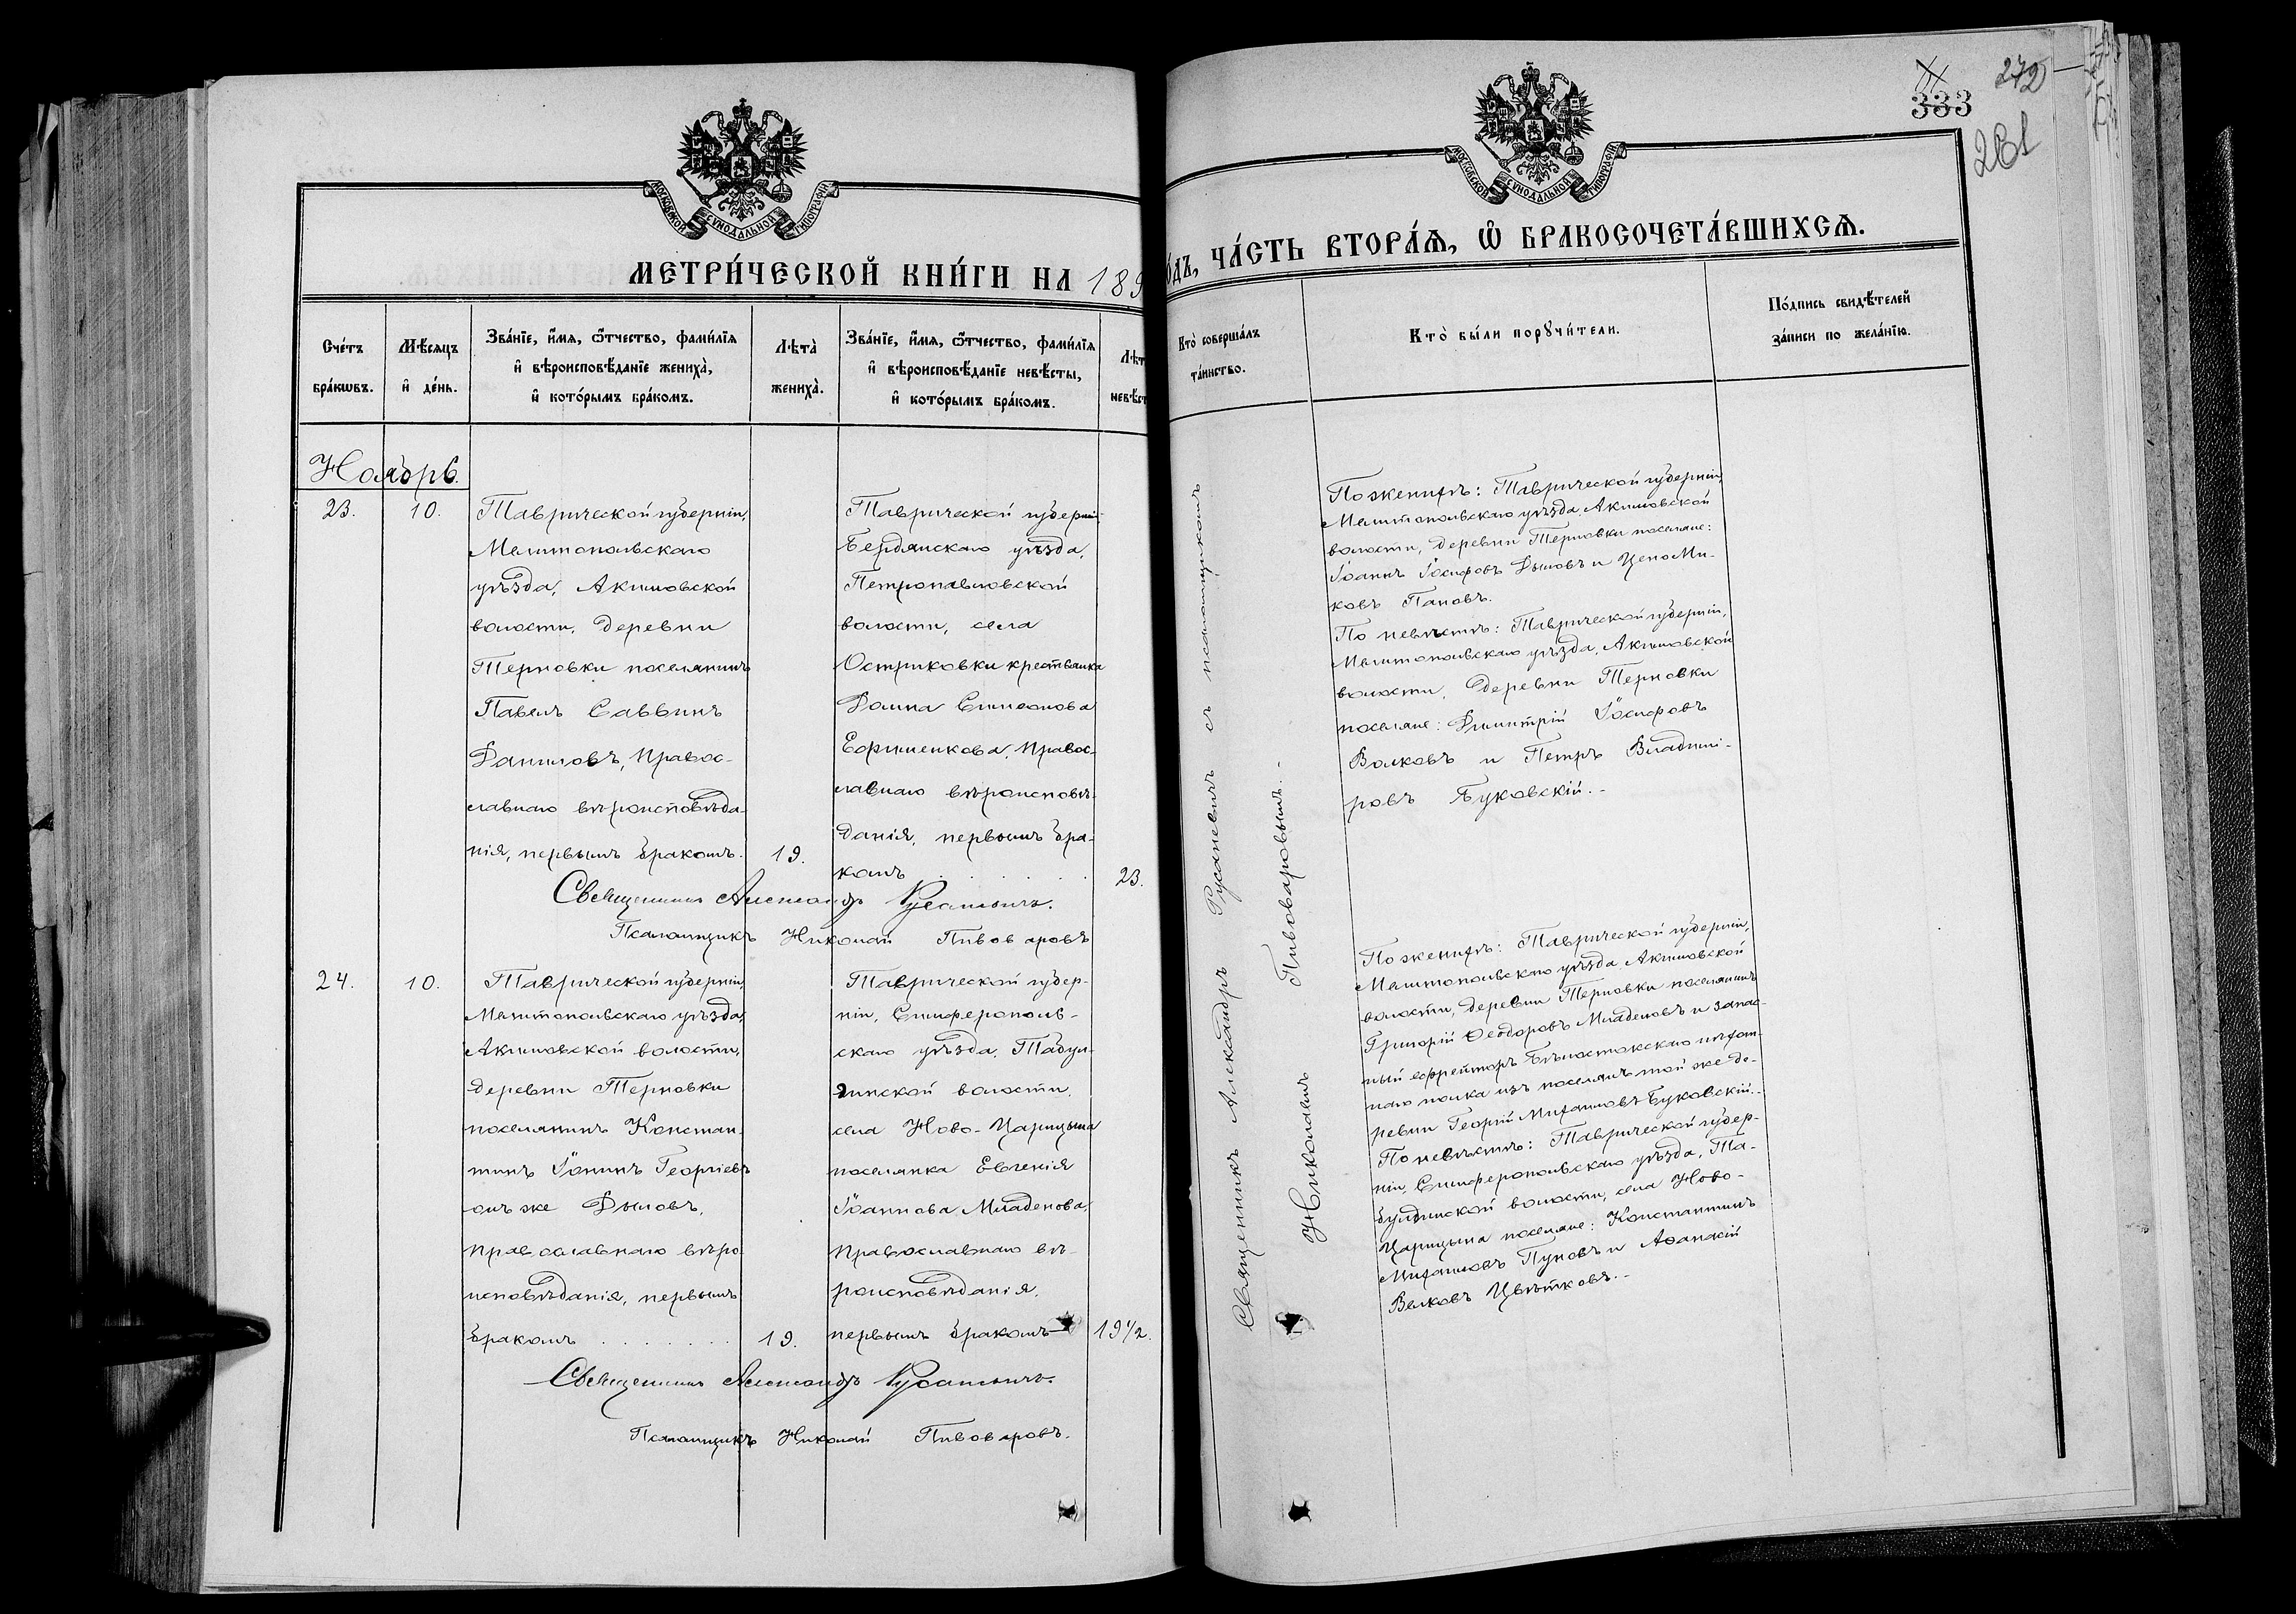 МОСКОВСКОЙ СѴНОДАЛЬНОЙ ТИПОГРАФІИ
МЕТРИ́ЧЕСКОЙ КНИ́ГИ НА 189
Сче́тъ бра́кѡвъ.
Мѣ́сяцъ и҆ де́нь.
Зва́нїе, и҆́мя, ѻ҆́тчество, фами́лїя и҆ вѣроисповѣ́данїе жениха̀, и҆ кото́рымъ бра́комъ.
Лѣта̀ жениха̀.
Зва́нїе, и҆́мя, ѻ҆́тчество, фами́лїя и҆ вѣроисповѣ́данїе невѣ́сты, и҆ кото́рымъ бра́комъ.
Ноябрь.
23.
10.
Таврической губерніи,
Мелитопольскаго
уѣзда, Акимовской
волости, деревни
Терновки поселянинъ
Павелъ Саввинъ
Даниловъ, правос-
лавнаго вѣроисповѣда-
нія, первымъ бракомъ.
19.
Таврической губерніи
Бердянскаго уѣзда,
Петропавловской
волости, села
Остриковки крестьянка
Домна Симеонова
Ефименкова, правос-
лавнаго вѣроисповѣ-
данія, первымъ бра-
комъ
23.
Священникъ Александръ Русаневичъ.
Псаломщикъ Николай Пивоваровъ
24.
10.
Таврической губерніи,
Мелитопольскаго уѣзда,
Акимовской волости,
деревни Терновки
поселянинъ Констан-
тинъ Іоаннъ Георгіевъ
онъ же Дымовъ,
православнаго вѣро
исповѣданія, первымъ
бракомъ
19.
Таврической губер-
ніи, Симферополь-
скаго уѣзда, Табул-
динской волости,
села Ново-Царицына
поселянка Евгенія
Іоаннова Младенова,
православнаго вѣ-
роисповѣданія,
первымъ бракомъ
19 1/2.
Священникъ Александръ Русаневичъ.
Псаломщикъ Николай Пивоваровъ.
333
272
261
МОСКОВСКОЙ СѴНОДАЛЬНОЙ ТИПОГРАФІИ
ЧА́СТЬ ВТОРА́Ѧ, Ѽ БРАКОСОЧЕТА́ВШИХСѦ.
Кто̀ соверша́лъ та́инство.
Кто̀ бы́ли порꙋчи́тели.
По́дпись свидѣ́телей за́писи по жела́нїю.
Священникъ Александръ Русаневичъ съ псаломщикомъ
Николаемъ Пивоваровымъ.-
По женихѣ: Таврической губерніи,
Мелитопольскаго уѣзда Акимовской
волости, деревни Терновки поселяне:
Іоаннъ Іосифовъ Дымовъ и Цено Ми-
ковъ Пановъ.
По невѣстѣ: Таврической губерніи,
Мелитопольскаго уѣзда, Акимовской
волости, деревни Терновки
поселяне: Димитрій Іосифовъ
Волковъ и Петръ Владимі-
ровъ Буковскій.-
По женихѣ: Таврической губерніи,
Мелитопольскаго уѣзда Акимовской
волости, деревни Терновки поселянинъ
Григорій Ѳеодоровъ Младеновъ и запас-
ный ефрейторъ Бѣлостокскаго пѣхот-
наго полка изъ поселянъ той же де-
ревни Георгій Михаиловъ Буковскій.-
По невѣстѣ: Таврической губер-
ніи, Симферопольскаго уѣзда, Та-
булдинской волости, села Ново-
Царицына поселяне: Константинъ
Михаиловъ Пуновъ и Аѳанасій
Велковъ Цвѣтковъ.-